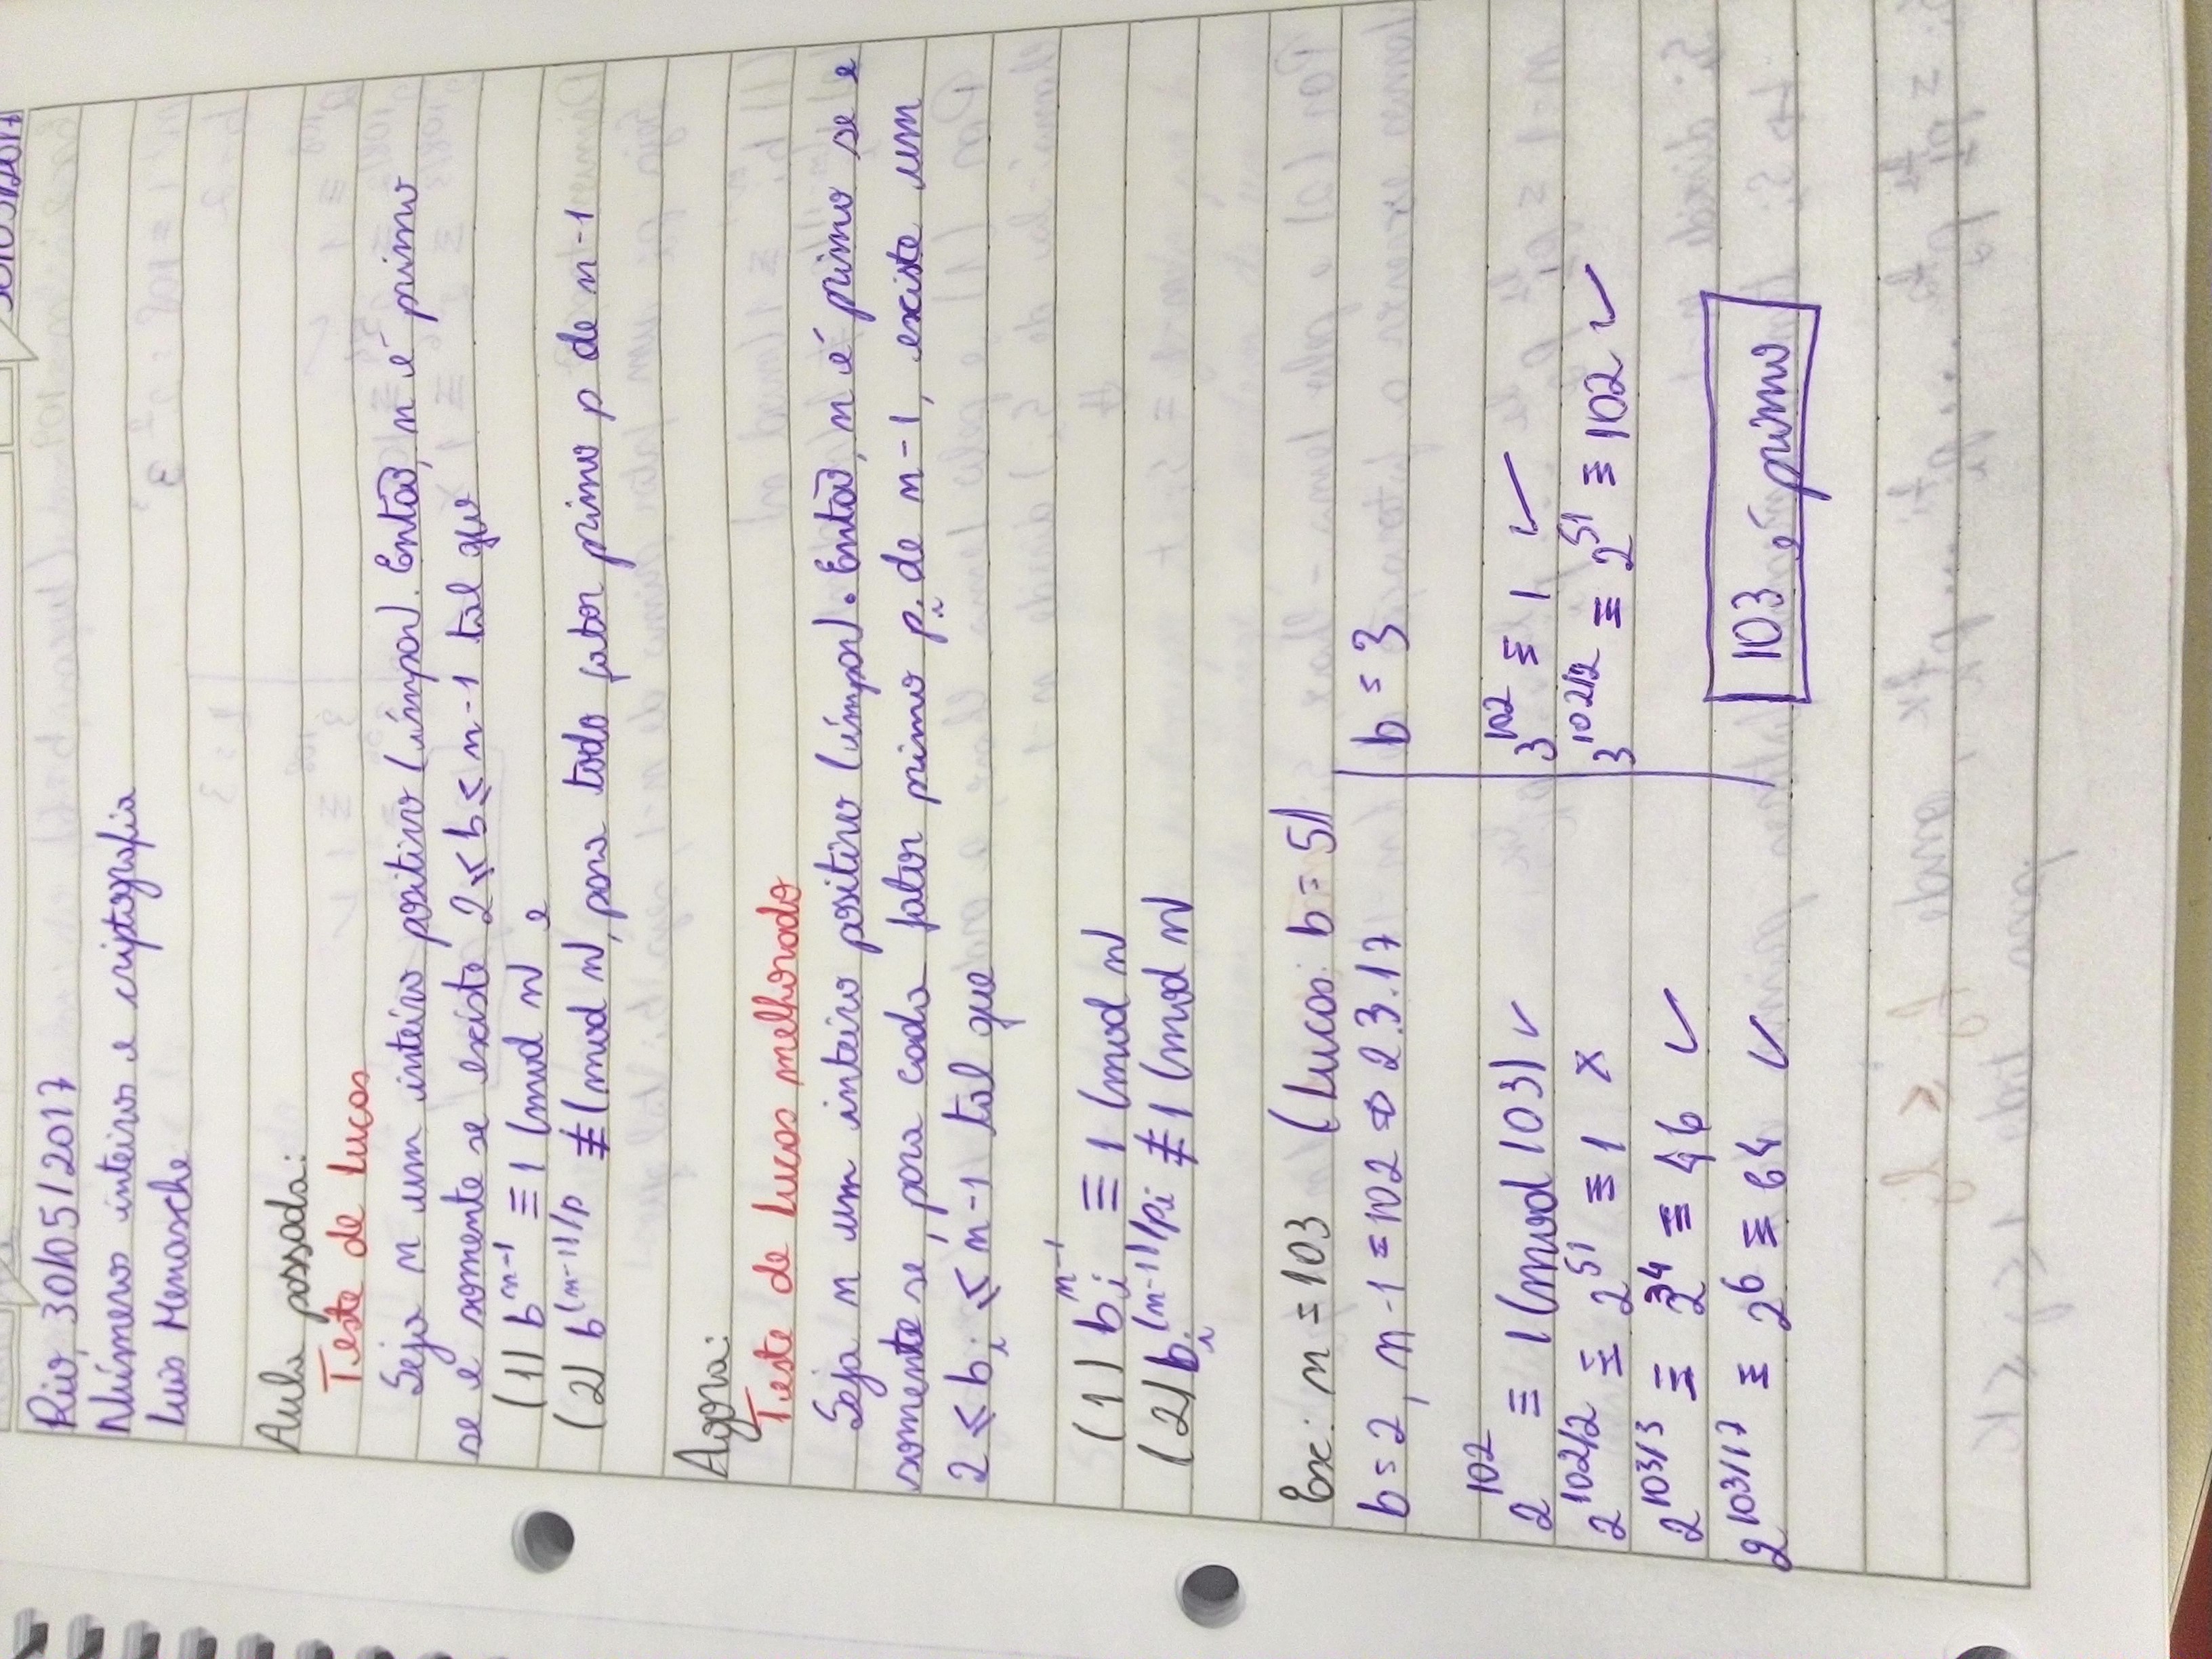 30/05/2017
Rio, 30/05/2017
Números inteiros e criptografia
Luis Menasche
Aula passada:
Teste de Lucas
Seja n um inteiro positivo (ímpar). Então, n é primo
se e somente se existe 2 ≤ b ≤ n-1 tal que
(1) b^{n-1} ≡ 1 (mod n) e
(2) b^{(n-1)/p} ≢ (mod n), para todo fator primo p de n-1
Agora:
Teste de Lucas melhorado
Seja n um inteiro positivo (ímpar). Então, n é primo se e
somente se, para cada fator primo p_i de n-1, existe um
2 ≤ b_i ≤ n-1 tal que
(1) b_i^{n-1} ≡ 1 (mod n)
(2) b_i^{(n-1)/p_i} ≢ 1 (mod n)
Ex: n = 103 (Lucas: b = 5)
b = 2, n-1 = 102 ⇒ 2.3.17
2^{102} ≡ 1 (mod 103) ✓
2^{102/2} ≡ 2^{51} ≡ 1 x
2^{103/3} ≡ 2^{34} ≡ 46 ✓
2^{103/17} ≡ 2^6 ≡ 64 ✓
b = 3
3^{102} ≡ 1 ✓
3^{102/2} ≡ 2^{51} ≡ 102 ✓
103 é primo